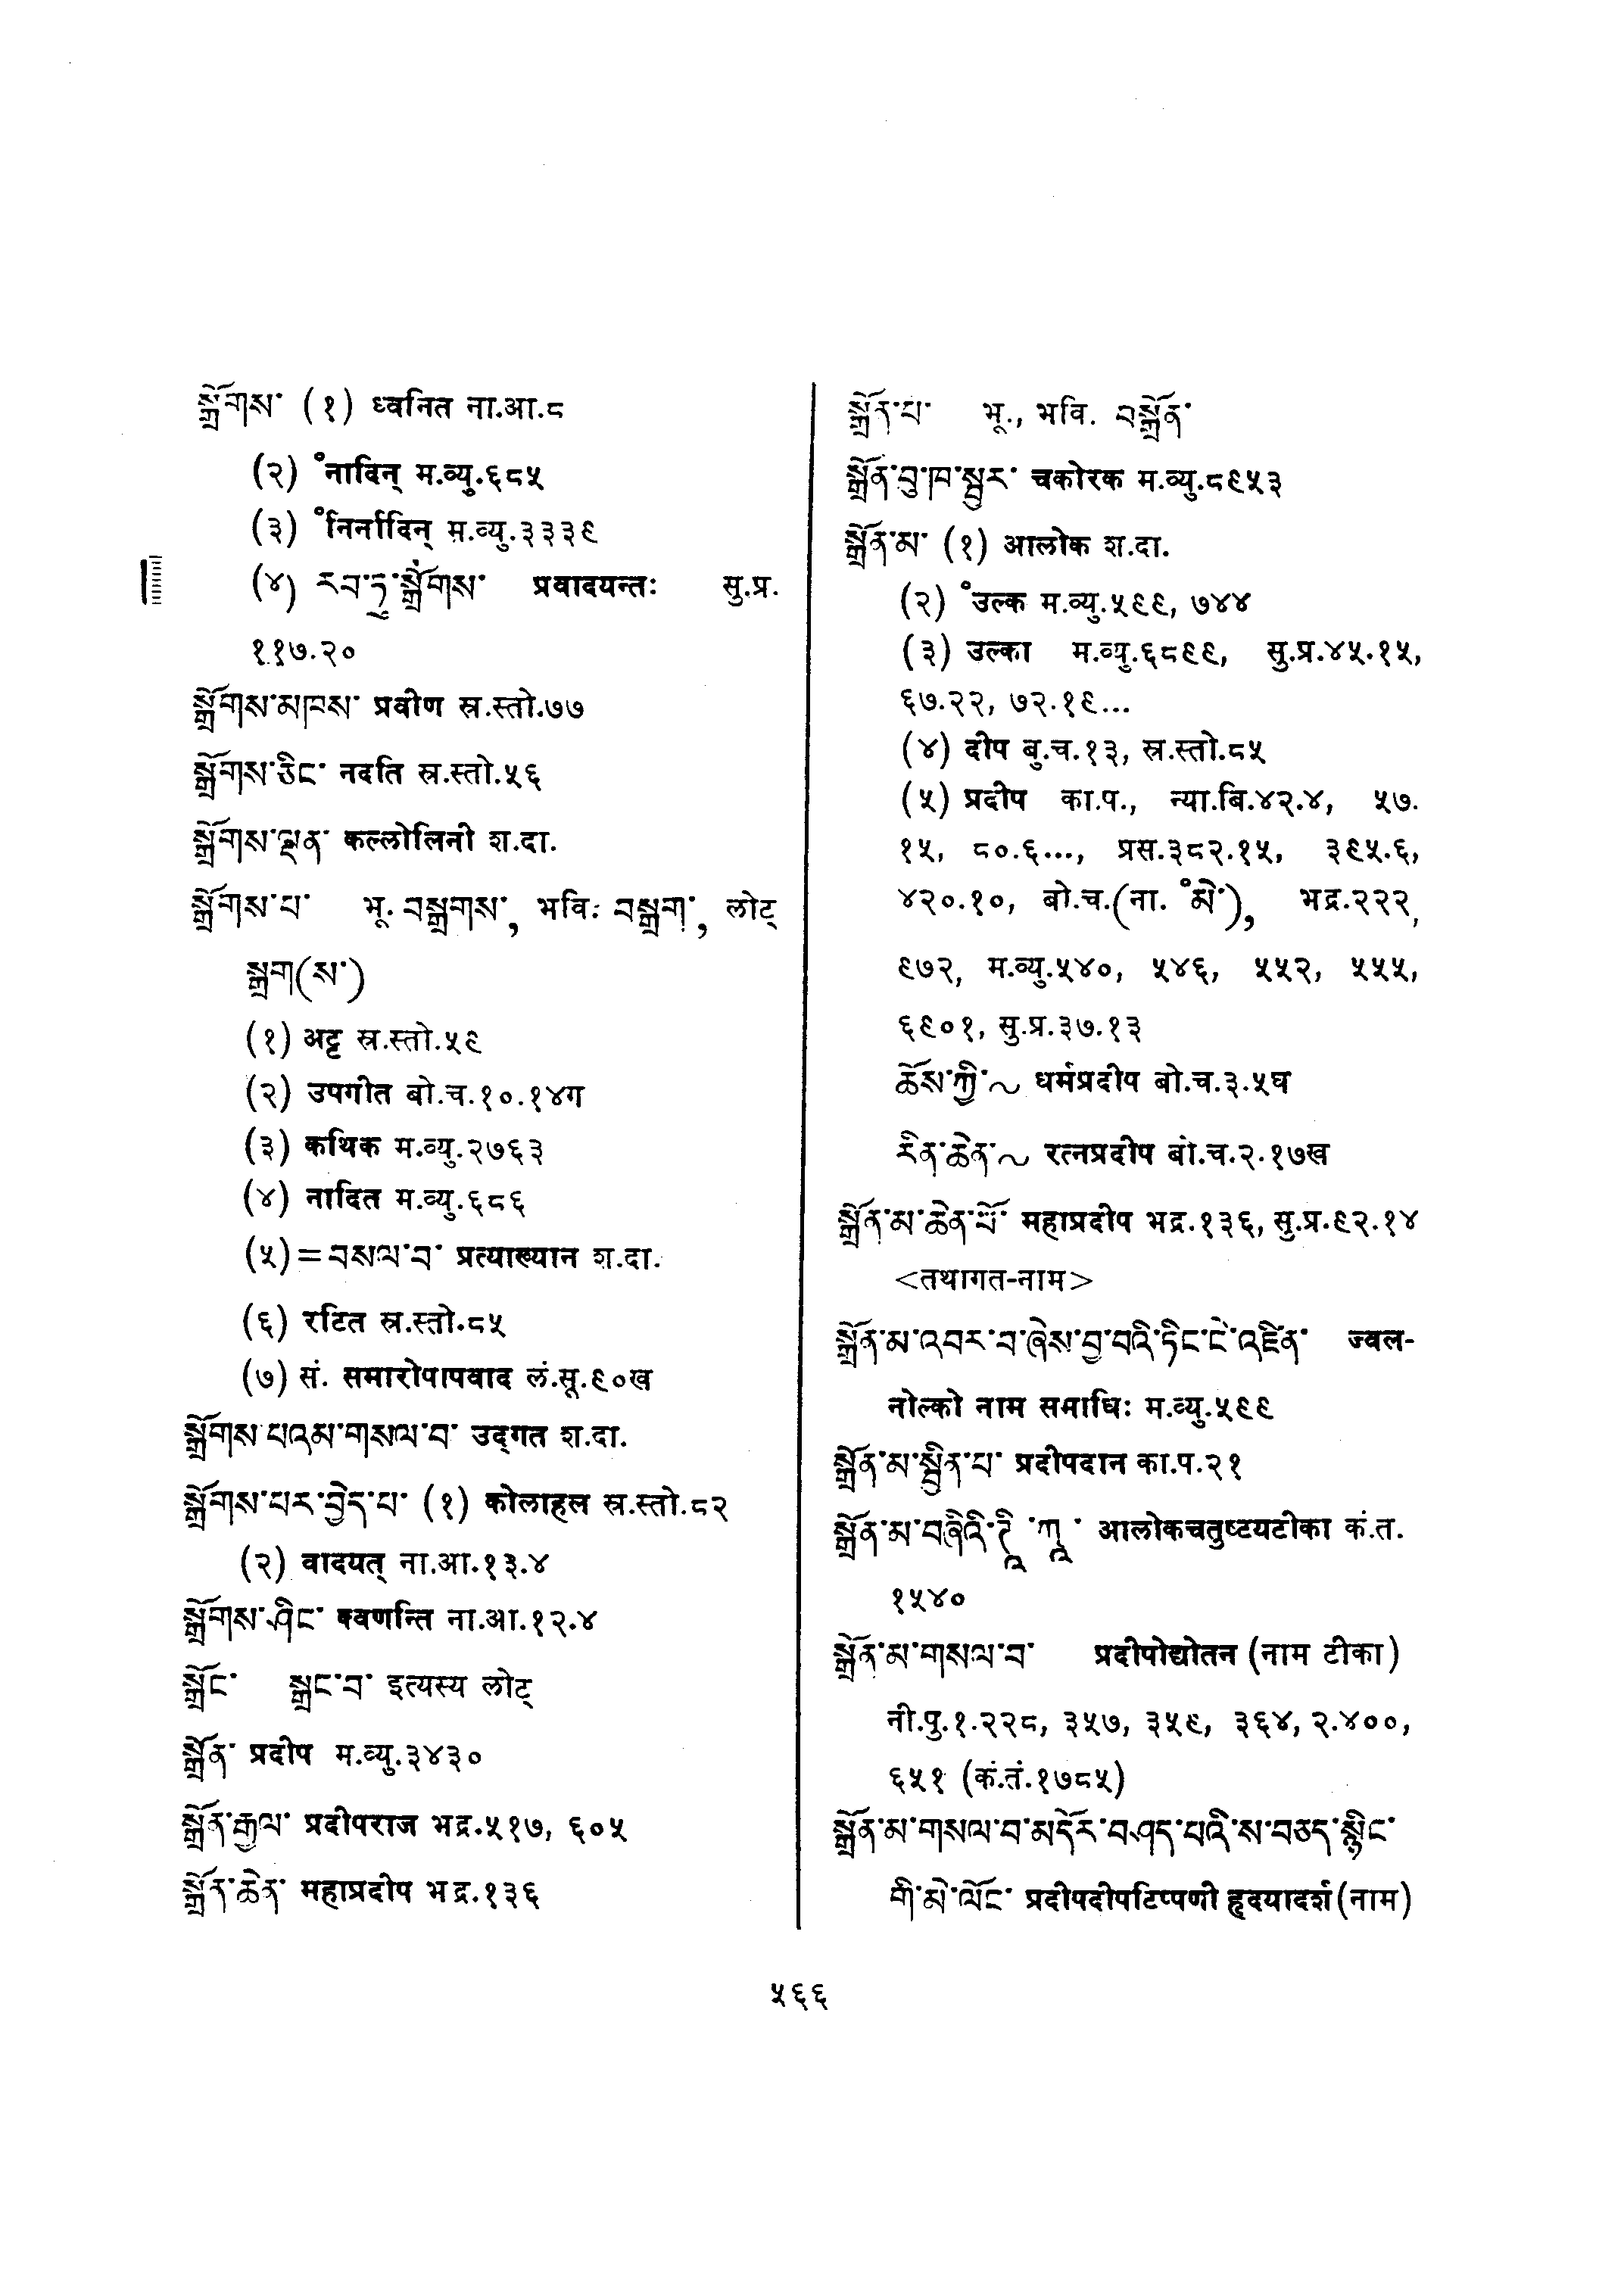 སྒྲོགས་ (१) ध्वनित ना.आ.८
(२) ॰नादिन् म.व्यु.६८५
(३) ॰निर्नादिन् म.व्यु.३३३९
(४) རབ་ཏུ་སྒྲོགས་ प्रवादयन्तः सु.प्र.
११७.२०
སྒྲོགས་མཁས་ प्रवीण स्र.स्तो.७७
སྒྲོགས་ཅིང་ नदति स्र.स्तो.५६
སྒྲོགས་ལྡན་ कल्लोलिनी श.दा.
སྒྲོགས་པ་ भू. བསྒྲགས་, भवि. བསྒྲག་, लोट्
སྒྲག(ས་)
(१) अट्ट स्र.स्तो.५९
(२) उपगीत बो.च.१०.१४ग
(३) कथिक म.व्यु.२७६३
(४) नादित म.व्यु.६८६
(५)=བསལ་བ་ प्रत्याख्यान श.दा.
(६) रटित स्र.स्तो.८५
(७) सं. समारोपापवाद लं.सू.९०ख
སྒྲོགས་པའམ་གསལ་བ་ उद्गत श.दा.
སྒྲོགས་པར་བྱེད་པ་ (१) कोलाहल स्र.स्तो.८२
(२) वादयत् ना.आ.१३.४
སྒྲོགས་ཤིང་ क्वणन्ति ना.आ.१२.४
སྒྲོང་ སྒྲང་བ་ इत्यस्य लोट्
སྒྲོན་ प्रदीप म.व्यु.३४३०
སྒྲོན་རྒྱལ་ प्रदीपराज भद्र.५१७, ६०५
སྒྲོན་ཆེན་ महाप्रदीप भद्र.१३६
སྒྲོན་པ་ भू., भवि. བསྒྲོན་
སྒྲོན་བུ་ཁ་སྦུར་ चकोरक म.व्यु.८९५३
སྒྲོན་མ་ (१) आलोक श.दा.
(२) ॰उल्क म.व्यु.५९९, ७४४
(३) उल्का म.व्यु.६८९९, सु.प्र.४५.१५,
६७.२२, ७२.१९...
(४) दीप बु.च.१३, स्र.स्तो.८५
(५) प्रदीप का.प., न्या.बि.४२.४, ५७.
१५, ८०.६..., प्रस.३८२.१५, ३९५.६,
४२०.१०, बो.च.(ना. ॰མེ་), भद्र.२२२,
९७२, म.व्यु.५४०, ५४६, ५५२, ५५५,
६९०१, सु.प्र.३७.१३
ཆོས་ཀྱི་~ धर्मप्रदीप बो.च.३.५घ
རིན་ཆེན་~ रत्नप्रदीप बो.च.२.१७ख
སྒྲོན་མ་ཆེན་པོ་ महाप्रदीप भद्र.१३६, सु.प्र.९२.१४
<तथागत-नाम>
སྒྲོན་མ་འབར་བ་ཞེས་བྱ་བའི་ཏིང་ངེ་འཛིན་ ज्वल-
नोल्को नाम समाधिः म.व्यु.५९९
སྒྲོན་མ་སྦྱིན་པ་ प्रदीपदान का.प.२१
སྒྲོན་མ་བཞིའི་ཊཱི་ཀཱ་ आलोकचतुष्टयटीका कं.त.
१५४०
སྒྲོན་མ་གསལ་བ་ प्रदीपोद्योतन (नाम टीका)
नी.पु.१.२२८, ३५७, ३५९, ३६४, २.४००,
६५१ (कं.तं.१७८५)
སྒྲོན་མ་གསལ་བ་མདོར་བཤད་པའི་ས་བཅད་སྙིང་
གི་མེ་ལོང་ प्रदीपदीपटिप्पणी हृदयादर्श (नाम)
५६६